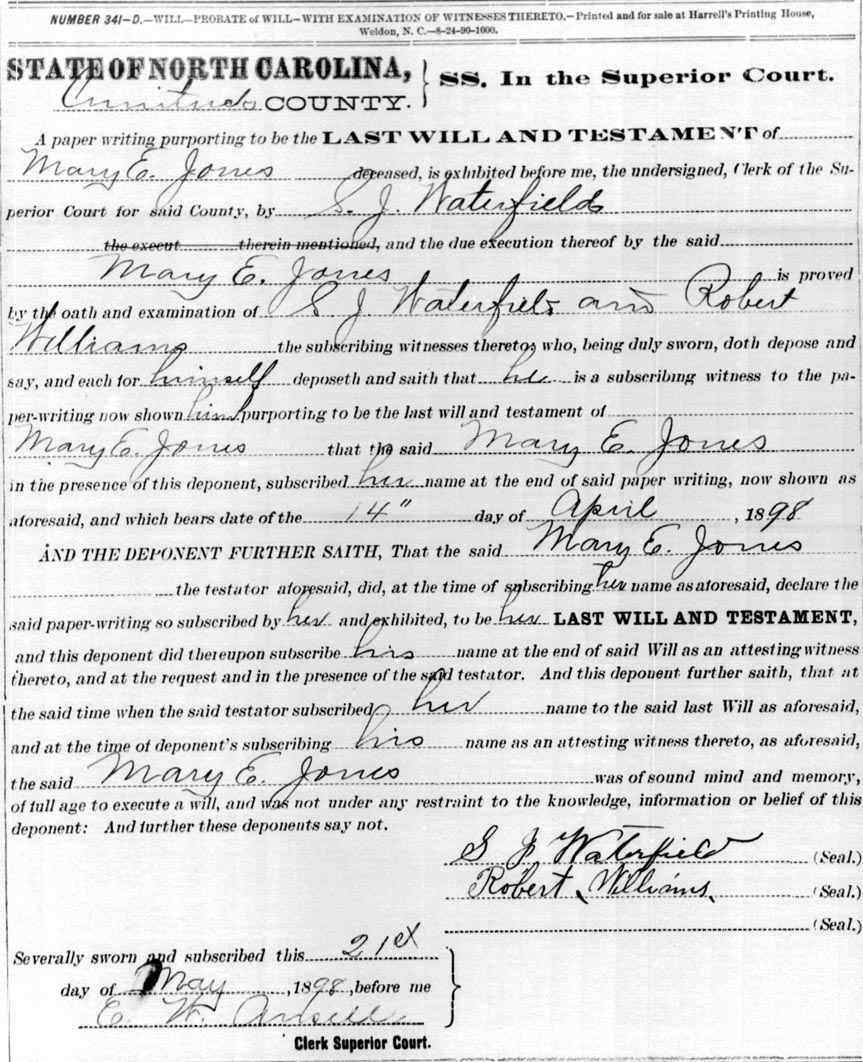 NUMBER 341-D.—WILL—PROBATE of WILL—WITH EXAMINATION OF WITNESSES THERETO.—Printed and for sale at Harrell's Printing House,
Weldon, N. C.—8-24-90-1000.
STATE OF NORTH CAROLINA, } SS. In the Superior Court.
Currituck COUNTY.
A paper writing purporting to be the LAST WILL AND TESTAMENT of
Mary E. Jones deceased, is exhibited before me, the undersigned, Clerk of the Su-
perior Court for said County, by S. J. Waterfield
the execut therein mentioned, and the due execution thereof by the said
Mary E. Jones is proved
by the oath and examination of S J Waterfield and Robert
Williams the subscribing witnesses thereto, who, being duly sworn, doth depose and
say, and each for himself deposeth and saith that he is a subscribing witness to the pa-
per-writing now shown him purporting to be the last will and testament of
Mary E. Jones that the said Mary E. Jones
in the presence of this deponent, subscribed her name at the end of said paper writing, now shown as
aforesaid, and which bears date of the 14" day of April, 1898
AND THE DEPONENT FURTHER SAITH, That the said Mary E. Jones
the testator aforesaid, did, at the time of subscribing her name as aforesaid, declare the
said paper-writing so subscribed by her and exhibited, to be her LAST WILL AND TESTAMENT,
and this deponent did thereupon subscribe his name at the end of said Will as an attesting witness
thereto, and at the request and in the presence of the said testator. And this deponent further saith, that at
the said time when the said testator subscribed her name to the said last Will as aforesaid,
and at the time of deponent's subscribing his name as an attesting witness thereto, as aforesaid,
the said Mary E. Jones was of sound mind and memory,
of full age to execute a will, and was not under any restraint to the knowledge, information or belief of this
deponent: And further these deponents say not.
S J Waterfield (Seal.)
Robert Williams (Seal.)
(Seal.)
Severally sworn and subscribed this 21st
day of May, 1898, before me
E. W. Ansell
Clerk Superior Court.